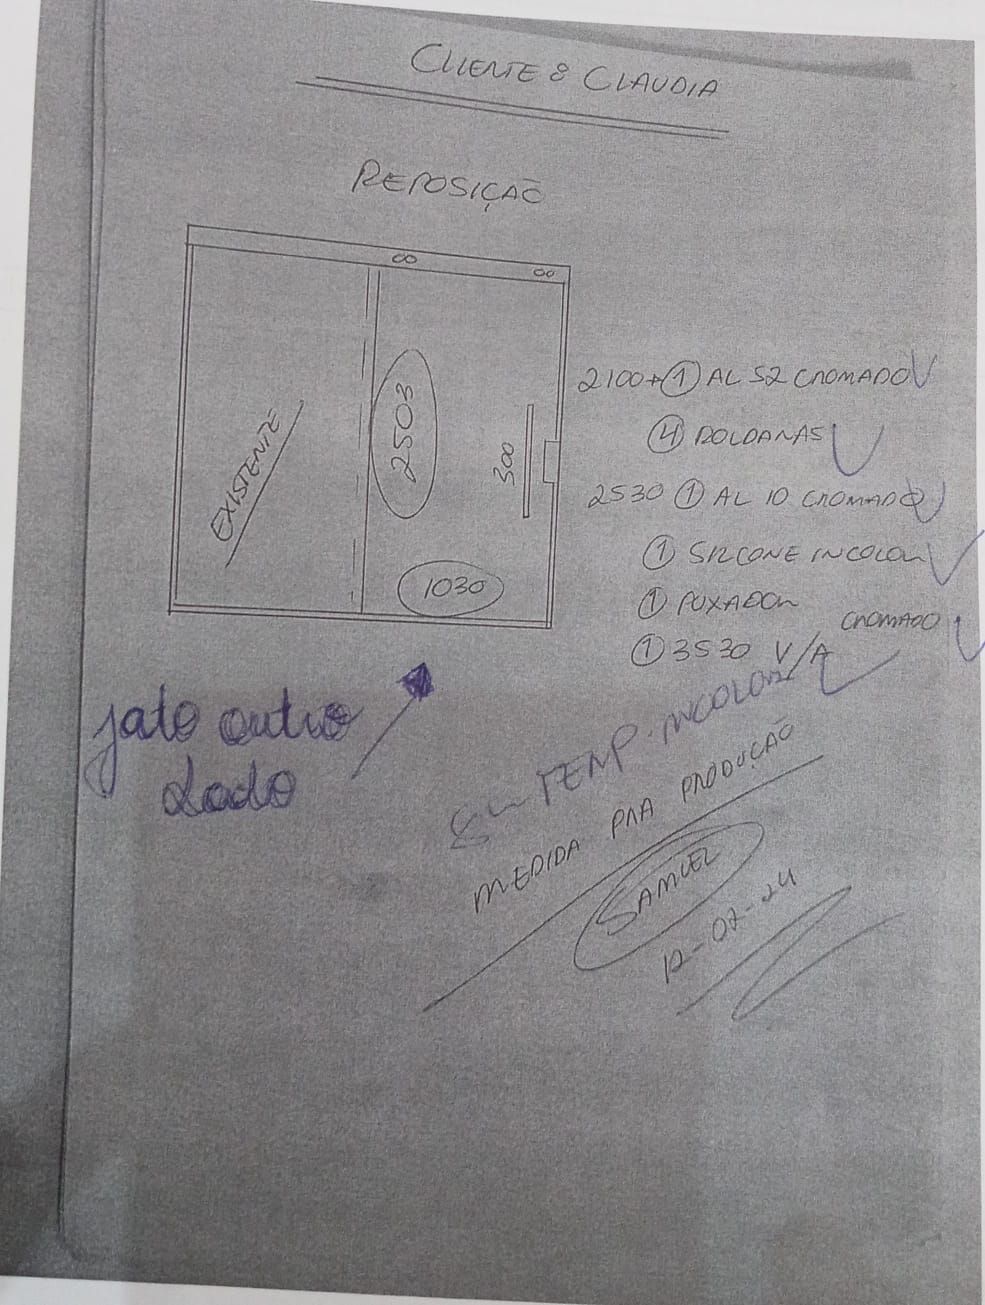 CLIENTE: CLAUDIA
REPOSIÇÃO
EXISTENTE
2503
300
1030
2100+ ① AL 52 CROMADO
④ ROLDANAS
2530 ① AL 10 CROMADO
① SILCONE INCOLOR
① PUXADOR CROMADO
① 3530 V/A
jato outro
lado
TEMP. INCOLOR
MEDIDA PRA PRODUÇÃO
SAMUEL
12-02-24